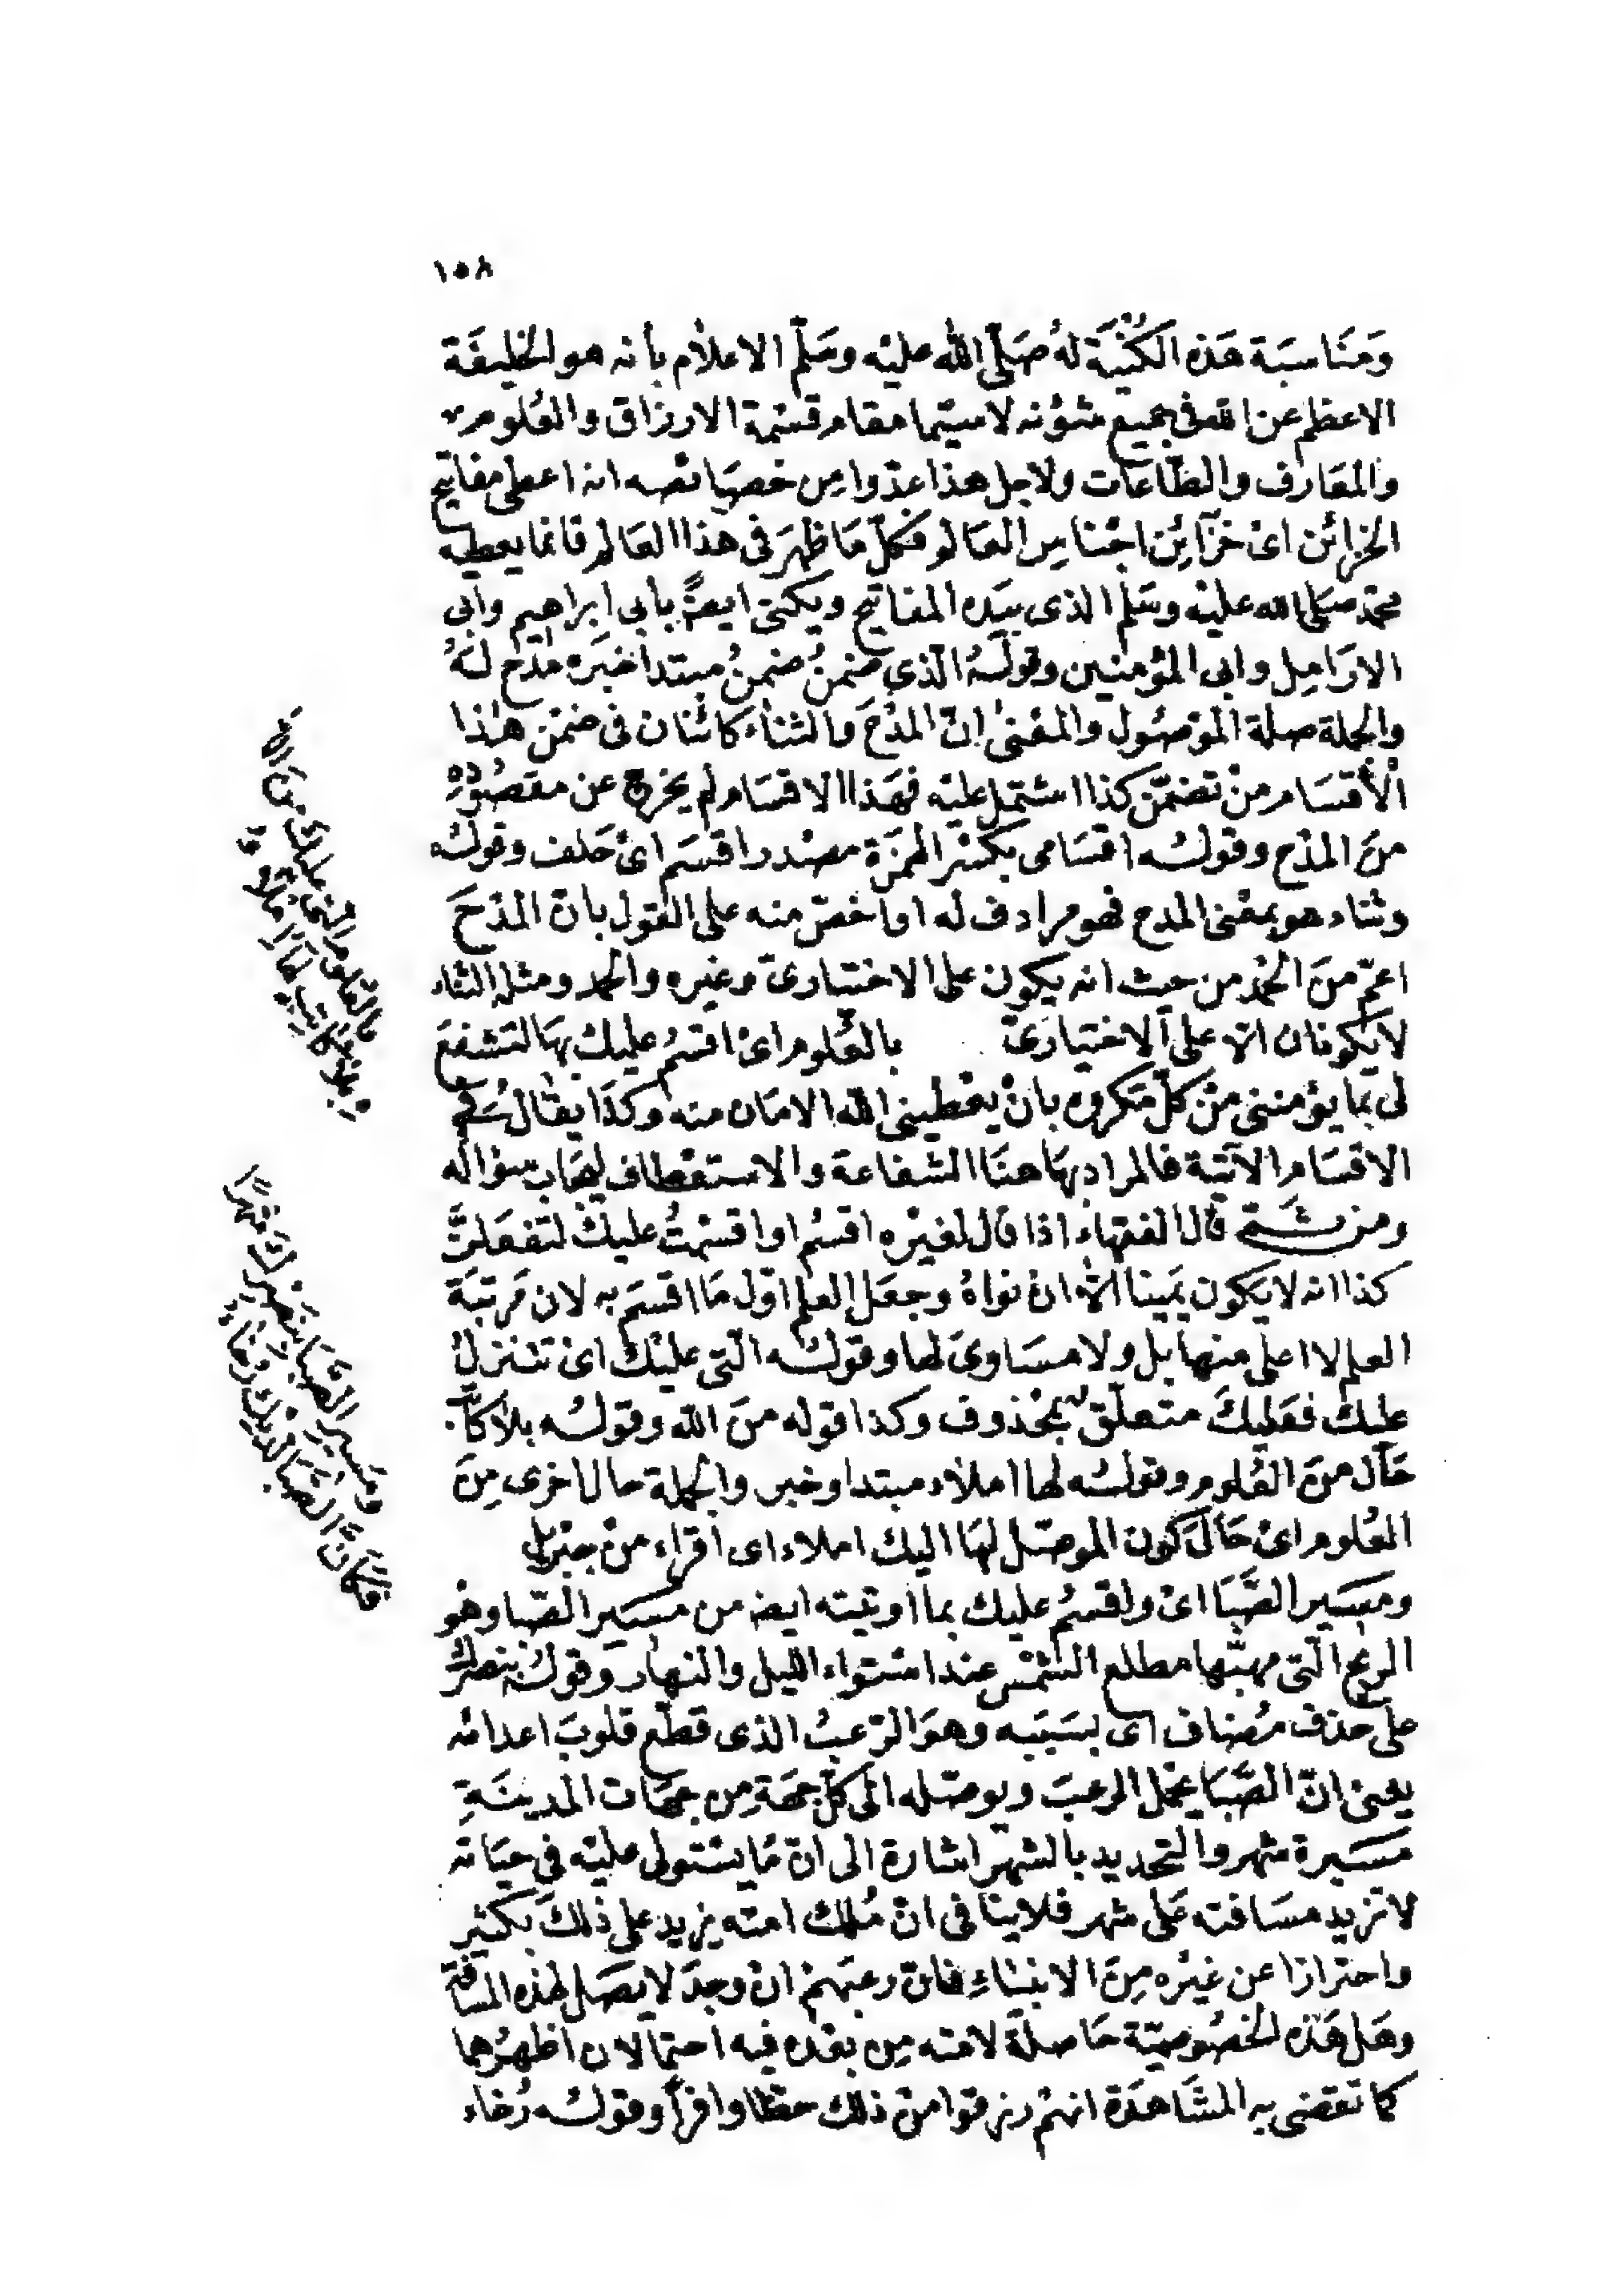 ١٥٨
وَمنَاسبَة هَذه الكُنْيَة لهُ صَلّى الله عليْه وسَلّم الاعلام بأنه هو الخليفَة
الاعظم عن الله فى جميع شؤنه لاسيّما مقام قسْمة الارزاق والعُلوم
والمعَارف والطّاعَات ولاجل هذا عدّوا مِن خصَائصه انه اعطى مفاتيح
الخزائن اىْ خزَآئِن اجْناسِ العَالم فكلّ مَا ظهَرَ فى هذا العَالم فانما يعطيه
محمّد صَلى الله عليْه وسَلّم الذى بيَده المفاتيح ويكنى ايضًا بأبى ابراهيم وابى
الارَامِل وابى المؤمنين وقولهُ الّذى ضمنُ ضمنُ مبتدا خبَره مدْح لهُ
والجملة صلة الموْصُول والمعْنى انّ المدْحَ والثناء كائنان فى ضمْن هٰذا
الْأقسَام منْ تضمّن كذا اشتمل عليْه فهَذا الاقسَام لم يخرج عن مقصُوْدهِ
منَ المدْح وقولُه اقسَامى بكسْر الهمزَة مصْدر اقسَم اىْ حَلف وقولُه
وثناء هو بمعْنى المدح فهو مرادف له او اخصّ منه على القول بانّ المدْحَ
اعمّ منَ الحمْد من حيث انه يكون على الاختيارىّ وغيره والحمد ومثله الثناء
لا يكونان الّا على الاختيارىّ بالعُلوم اىْ اقسمُ عليك بهَا لتشفعَ
لى بما يؤمننى منْ كلّ مكروه بانْ يعْطينى الله الامَان منه وكذَا يقالُ فى
الاقسَام الآتية فالمراد بهَا هنَا الشفاعة والاستعْطاف ليجَاب سؤاله
ومن ثَمّ قال الفقهاء اذا قال لغيْره اقسُم او اقسمْتُ عليك لتفعَلنَّ
كذا انه لا يكون يَمينا الّا انْ نواهُ وجعَل العلم اوّل مَا اقسَم به لان مَرتبَة
العلم لا اعلى منها بل ولا مسَاوىَ لها وقولُه الّتى عليْك اىْ تتنزلُ
عليك فعَليكَ متعلّق بمحْذوف وكذا قوله منَ الله وقولُه بلا كاتب
حَال منَ العُلوم وقولُه لها املاء مبتدا وخبر والجملة حال اخرى مِنَ
العُلوم اىْ حَالَ كون الموصّل لهَا اليك املاء اى اقراء منْ جبْريل
ومَسَير الصَّبَا اىْ واقسمُ عليك بما اوتيته ايضا من مَسَير الصّبا وهُو
الريح الّتى مهبّها مطلع الشمْس عند استواء الليل والنهار وقولُه بنصْرك
على حذف مُضاف اى بسَبَبه وهوَ الرّعبُ الذى قطّع قلوبَ اعدائه
يعنى انّ الصَّبا يحمل الرعبَ ويوصّله الى كلّ جهَةٍ من جهَات المدينَةِ
مَسَيرة شهر والتحديد بالشهر اشارة الى انّ مَا يسْتولى عليْه فى حيَاته
لا تزيد مسَافته عَلى شهر فلا ينافى انّ مُلك امته يزيد على ذلكَ بكثير
واحترازا عن غيْره مِنَ الانبيَاءِ فانّ رعبَهمْ انْ وجدَ لا يصَل لهذه المسافة
وهَل هَذه الخصُوصيّة حَاصلة لامّته مِن بعْده فيه احتمالان اظهرُهما
كما تقضى به المشَاهدَة انهمْ رزقوا منْ ذلك حظا وافرًا وقولُه رُخاء
بالعُلوم الّتى عليْك منَ اللّٰـ
ـه بلا كاتبٍ لهَا املاءُ
ومَسيرِ الصَّبَا بنَصْرِكَ شهْرًا
فكأنَّ الصَّبَا لديْكَ رُخاءُ